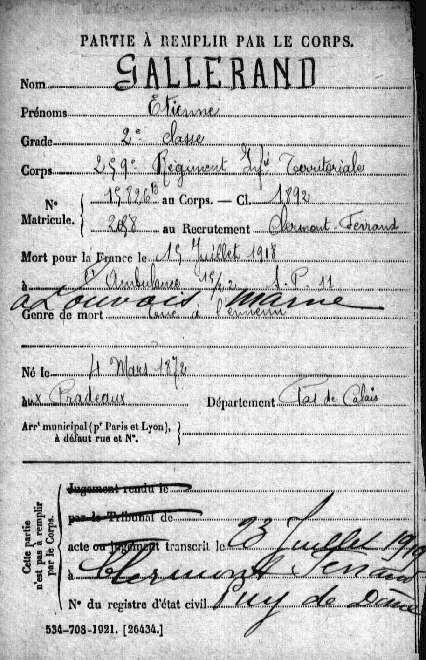 PARTIE À REMPLIR PAR LE CORPS.
Nom GALLERAND
Prénoms Etienne
Grade 2e classe
Corps 259e Régiment Infie Territoriale
N° Matricule. 15826 b au Corps. — Cl. 1892
208 au Recrutement Clermont-Ferrand
Mort pour la France le 15 Juillet 1918
à l'Ambulance 15/22 S.P. 11
a Louvois Marne
Genre de mort Tué à l'ennemi
Né le 4 Mars 1872
aux Pradeaux Département Pas de Calais
Arrt municipal (pr Paris et Lyon), à défaut rue et N°.
Cette partie n'est pas à remplir par le Corps.
Jugement rendu le
par le Tribunal de
acte ou jugement transcrit le 23 Juillet 1919
à Clermont Ferrand
N° du registre d'état civil Puy de Dôme
534-708-1921. [26434.]